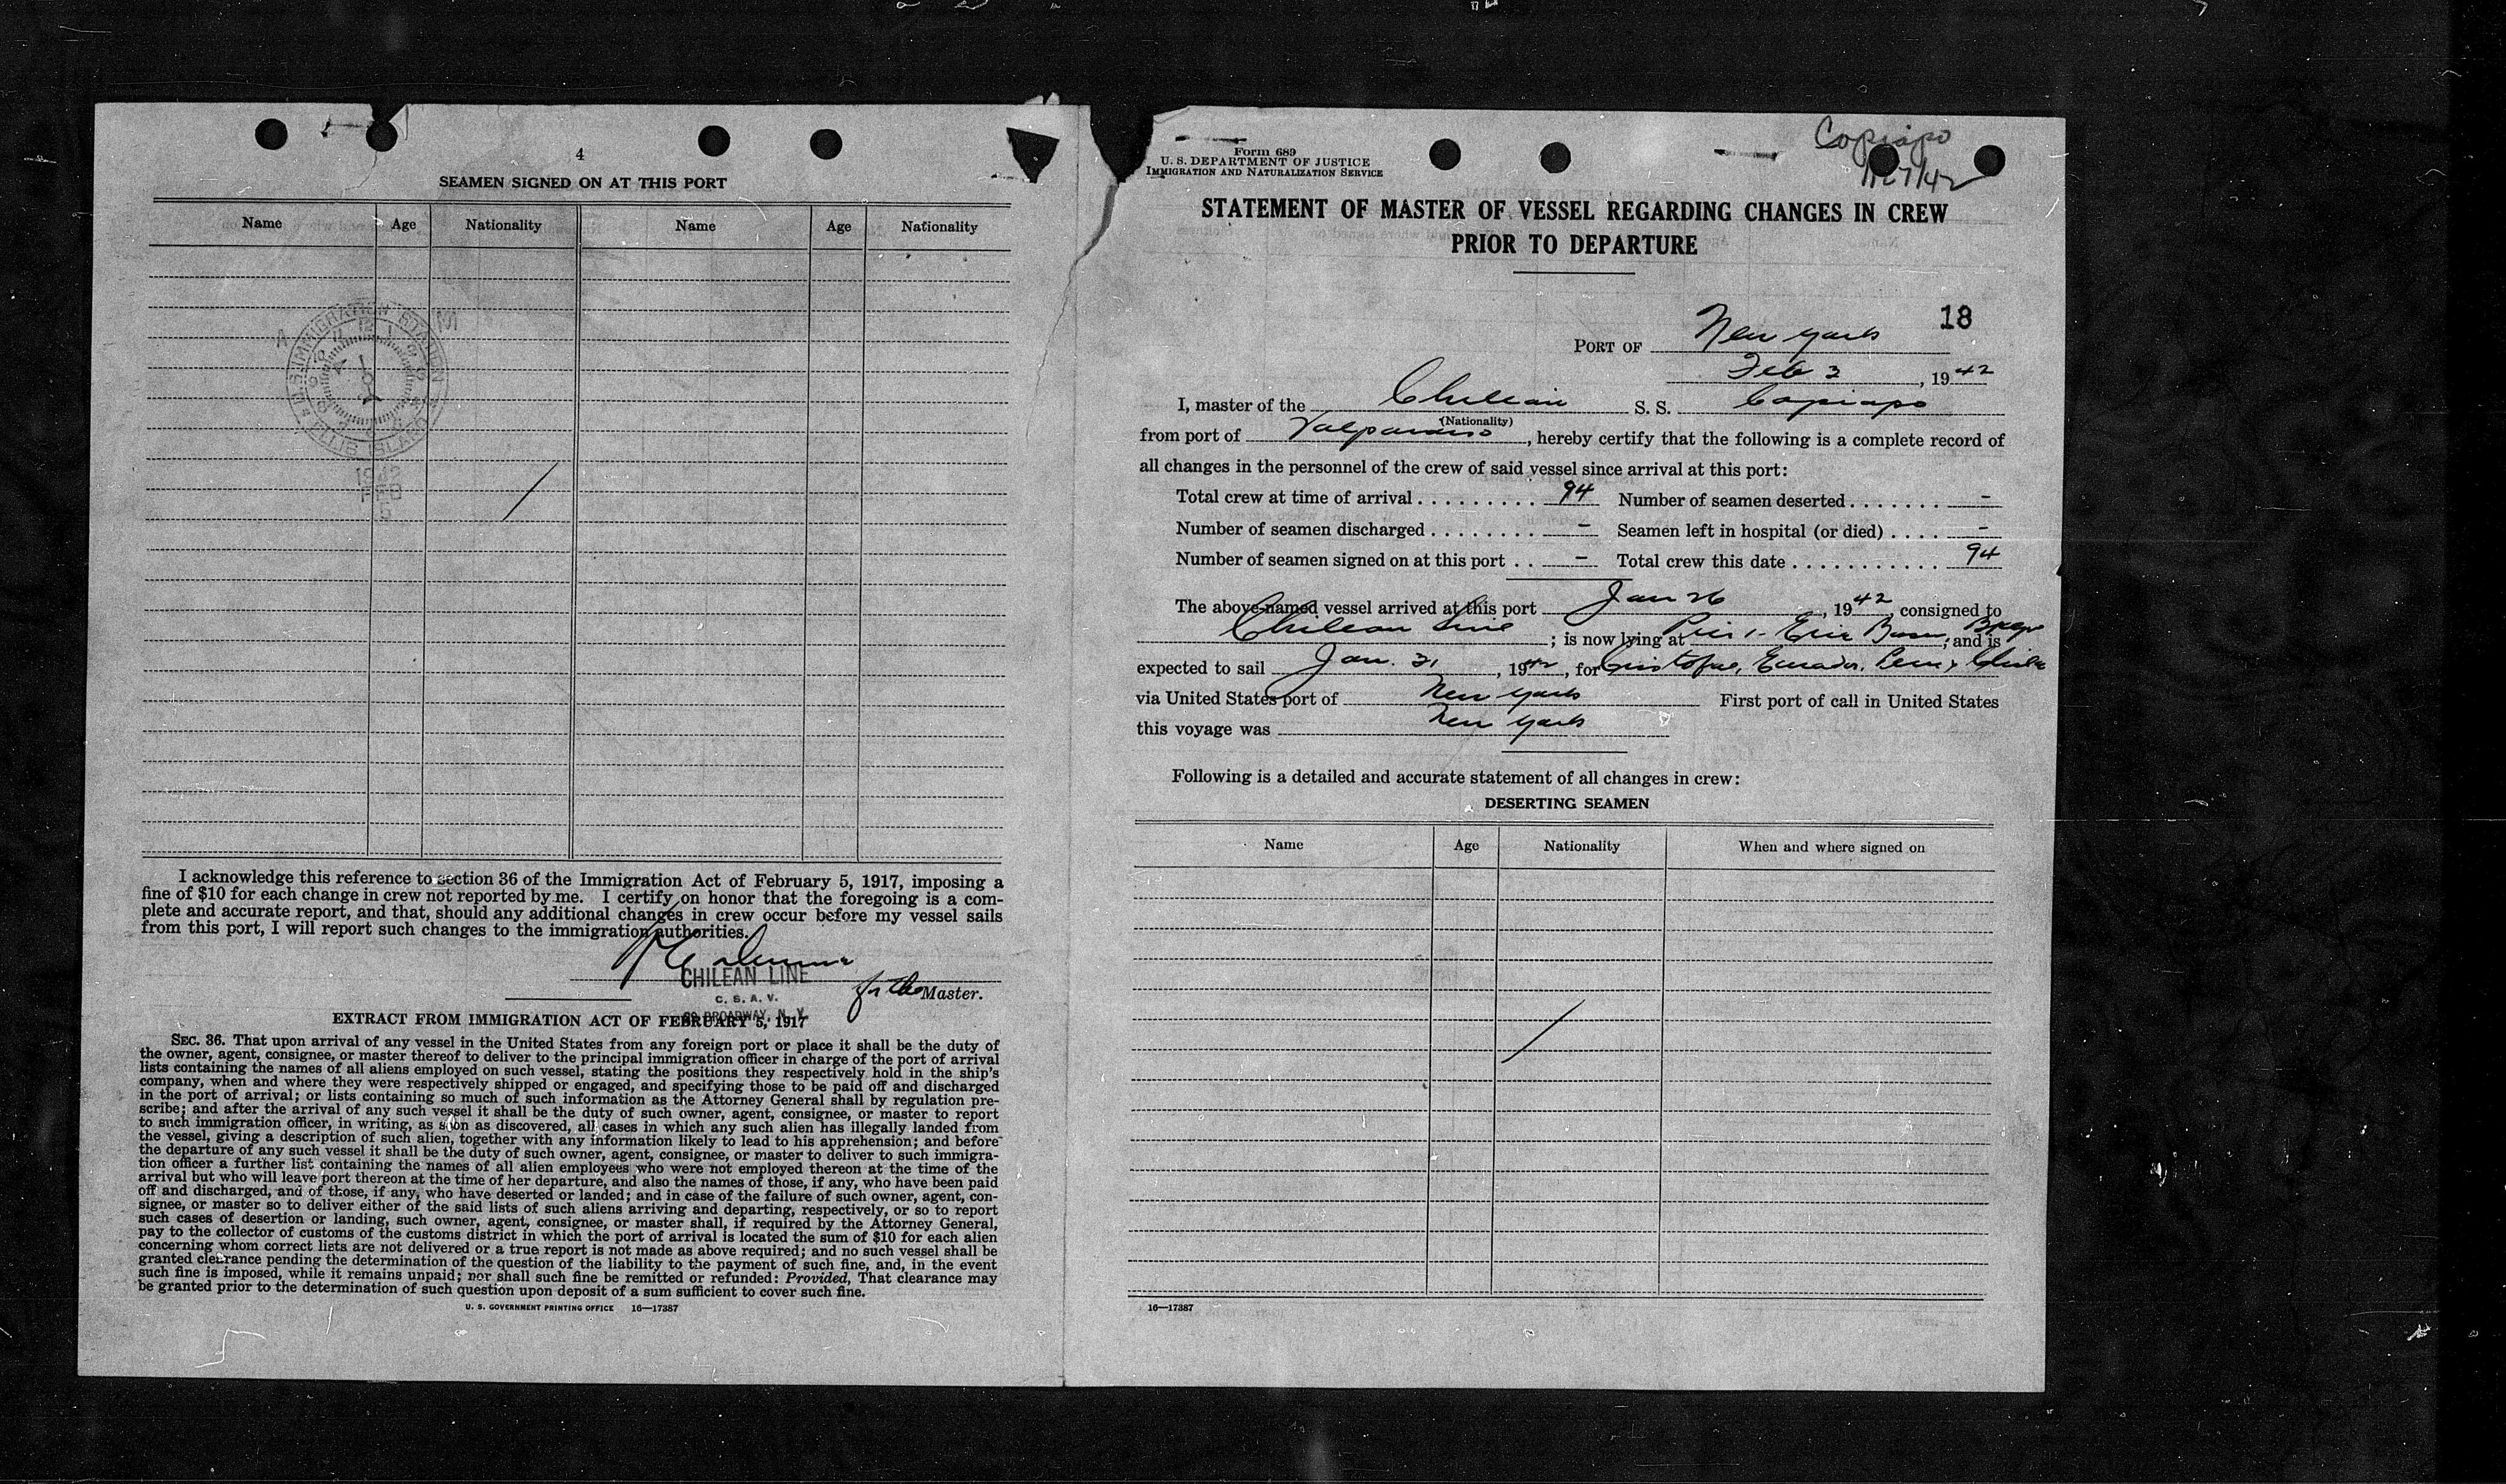 4
SEAMEN SIGNED ON AT THIS PORT
Name Age Nationality Name Age Nationality
U. S. IMMIGRATION STATION
ELLIS ISLAND
1942
FEB
5
I acknowledge this reference to section 36 of the Immigration Act of February 5, 1917, imposing a
fine of $10 for each change in crew not reported by me. I certify on honor that the foregoing is a com-
plete and accurate report, and that, should any additional changes in crew occur before my vessel sails
from this port, I will report such changes to the immigration authorities.
CHILEAN LINE
for the Master.
C. S. A. V.
BROADWAY, N. Y.
EXTRACT FROM IMMIGRATION ACT OF FEBRUARY 5, 1917
SEC. 36. That upon arrival of any vessel in the United States from any foreign port or place it shall be the duty of
the owner, agent, consignee, or master thereof to deliver to the principal immigration officer in charge of the port of arrival
lists containing the names of all aliens employed on such vessel, stating the positions they respectively hold in the ship's
company, when and where they were respectively shipped or engaged, and specifying those to be paid off and discharged
in the port of arrival; or lists containing so much of such information as the Attorney General shall by regulation pre-
scribe; and after the arrival of any such vessel it shall be the duty of such owner, agent, consignee, or master to report
to such immigration officer, in writing, as soon as discovered, all cases in which any such alien has illegally landed from
the vessel, giving a description of such alien, together with any information likely to lead to his apprehension; and before
the departure of any such vessel it shall be the duty of such owner, agent, consignee, or master to deliver to such immigra-
tion officer a further list containing the names of all alien employees who were not employed thereon at the time of the
arrival but who will leave port thereon at the time of her departure, and also the names of those, if any, who have been paid
off and discharged, and of those, if any, who have deserted or landed; and in case of the failure of such owner, agent, con-
signee, or master so to deliver either of the said lists of such aliens arriving and departing, respectively, or so to report
such cases of desertion or landing, such owner, agent, consignee, or master shall, if required by the Attorney General,
pay to the collector of customs of the customs district in which the port of arrival is located the sum of $10 for each alien
concerning whom correct lists are not delivered or a true report is not made as above required; and no such vessel shall be
granted clearance pending the determination of the question of the liability to the payment of such fine, and, in the event
such fine is imposed, while it remains unpaid; nor shall such fine be remitted or refunded: Provided, That clearance may
be granted prior to the determination of such question upon deposit of a sum sufficient to cover such fine.
U. S. GOVERNMENT PRINTING OFFICE 16—17387
Copiapo
1/27/42
Form 689
U. S. DEPARTMENT OF JUSTICE
IMMIGRATION AND NATURALIZATION SERVICE
STATEMENT OF MASTER OF VESSEL REGARDING CHANGES IN CREW
PRIOR TO DEPARTURE
18
PORT OF New York
Feb 3, 1942
I, master of the Chilean S. S. Copiapo
(Nationality)
from port of Valparaiso, hereby certify that the following is a complete record of
all changes in the personnel of the crew of said vessel since arrival at this port:
Total crew at time of arrival . . . . . . . . . . 94 Number of seamen deserted . . . . . . . -
Number of seamen discharged . . . . . . . . - Seamen left in hospital (or died) . . . . -
Number of seamen signed on at this port . . - Total crew this date . . . . . . . . . . . . 94
The above-named vessel arrived at this port Jan 26, 1942, consigned to
Chilean Line; is now lying at Pier 1 - Erie Basin; and is
expected to sail Jan. 31, 1942, for Cristobal, Ecuador, Peru, Chile
via United States port of New York First port of call in United States
this voyage was New York
Following is a detailed and accurate statement of all changes in crew:
DESERTING SEAMEN
Name Age Nationality When and where signed on
16—17387